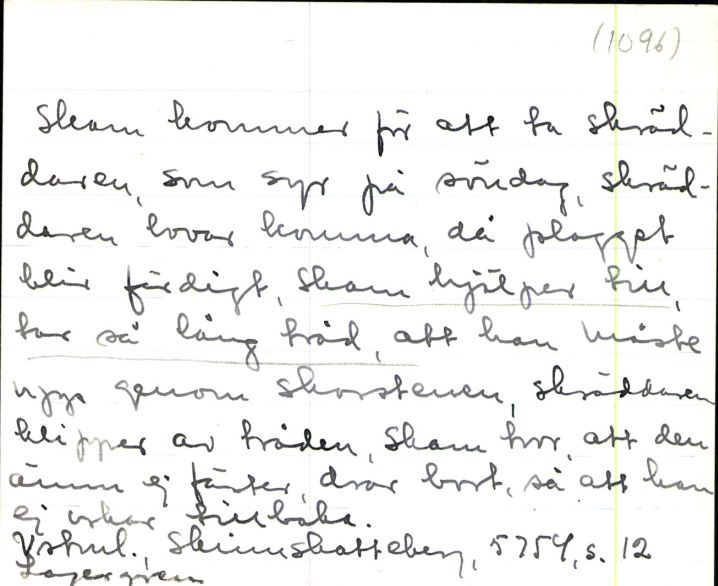 (1096)
Skam kommer för att ta skräd-
daren, som syr på söndag, skräd-
daren lovar komma, då plagget
blir färdigt, Skam hjälper till,
tar så lång tråd, att han måste
genom skorstenen, skräddaren
klipper av tråden, Skam tror, att den
ännu ej fäster, drar bort, så att han
ej orkar tillbaka.
Västml., Skinnskatteberg, 5754, s. 12
Lagergren